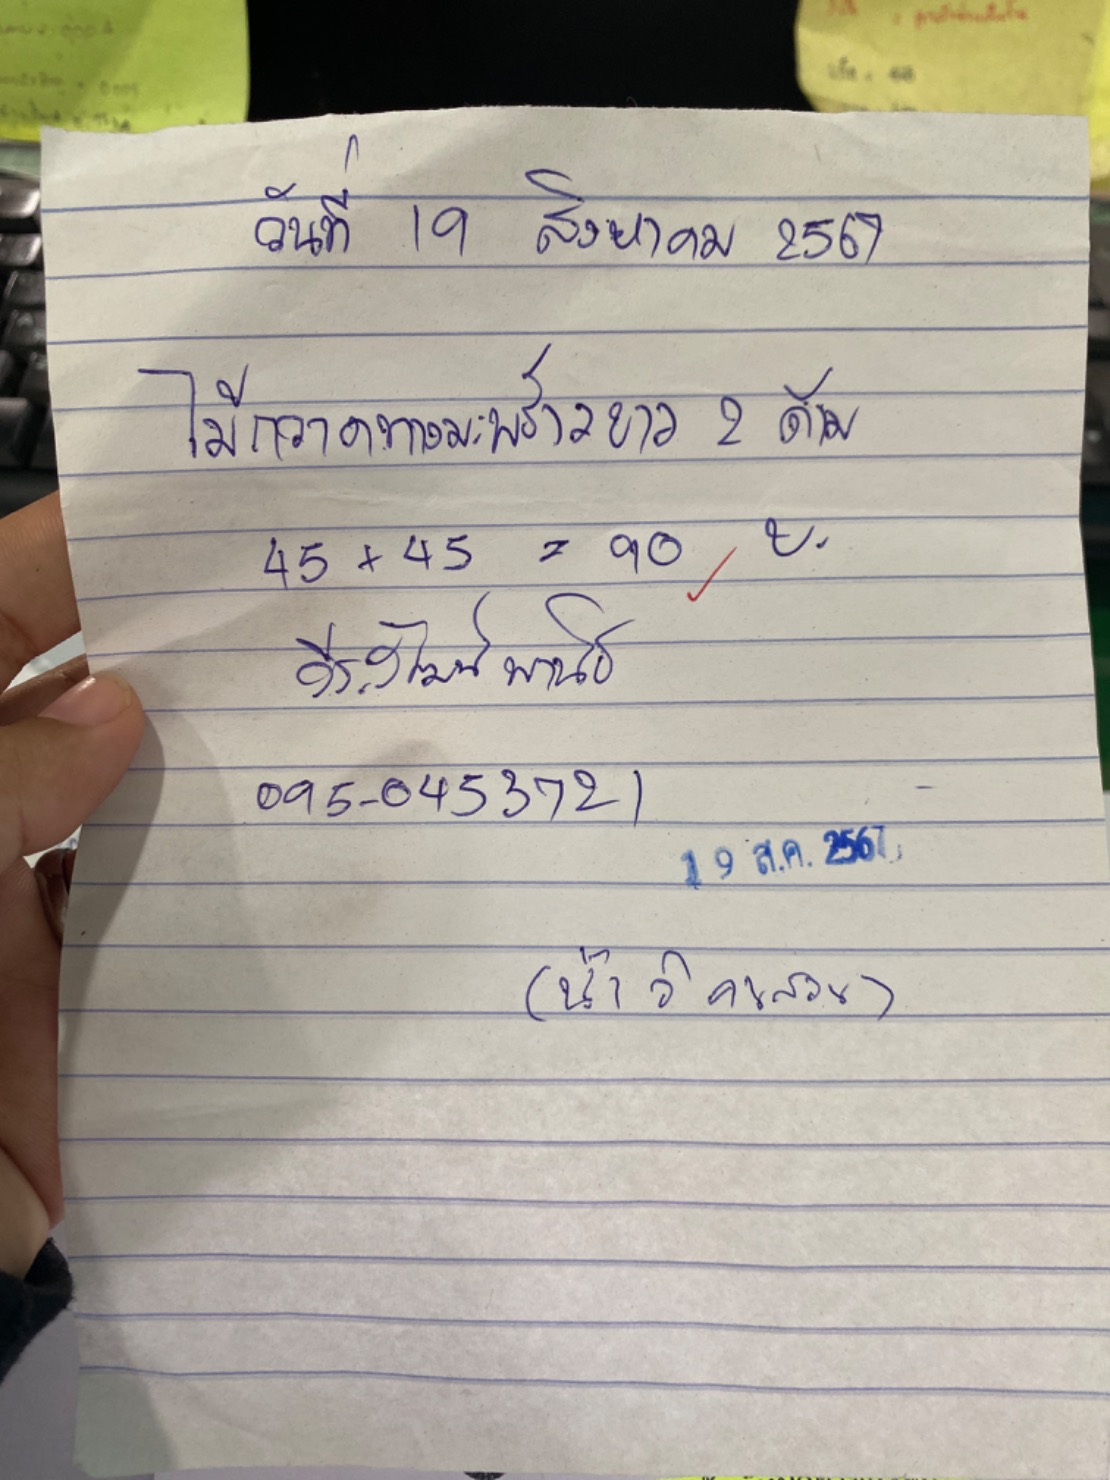 วันที่ 19 สิงหาคม 2567
ไม้กวาดทางมะพร้าวยาว 2 ด้าม
45 + 45 = 90 บ.
พานิช
095-0453721
19 ส.ค. 2567
(น้า วิ คนสวน)